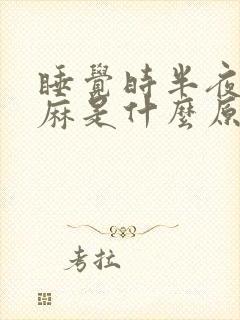 睡覺時半夜
麻是什麼原
考拉